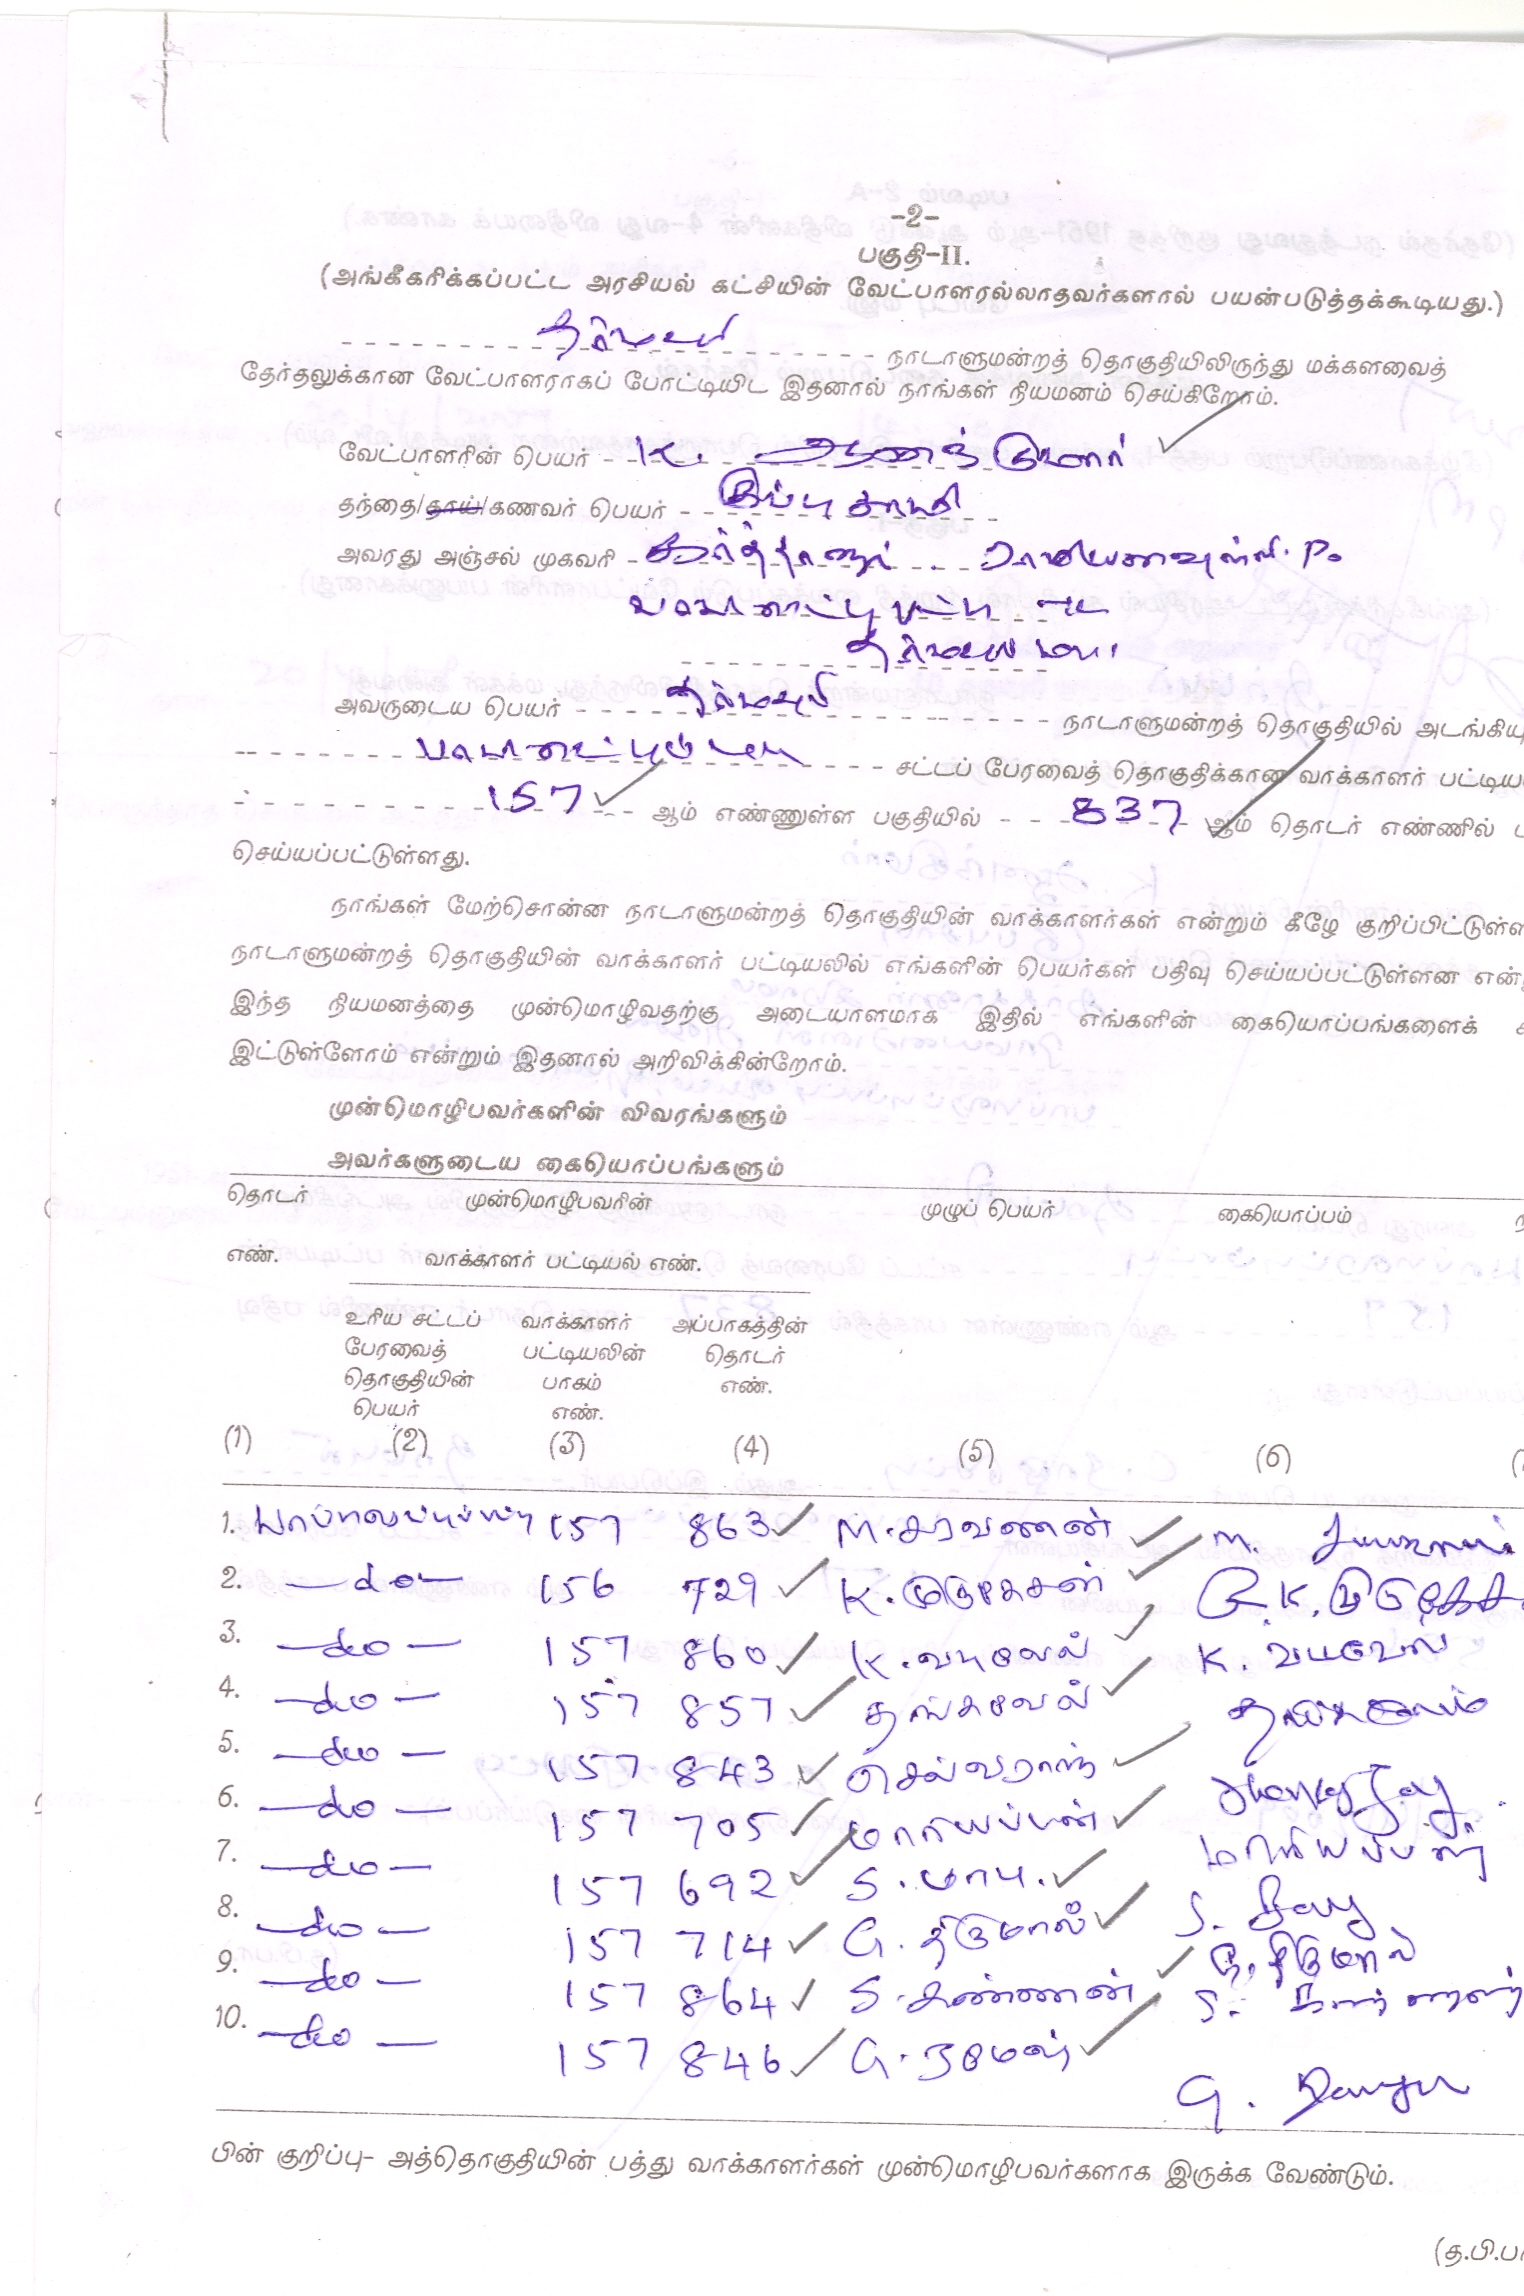 -2-
பகுதி-II.
(அங்கீகரிக்கப்பட்ட அரசியல் கட்சியின் வேட்பாளரல்லாதவர்களால் பயன்படுத்தக்கூடியது.)
தர்மபுரி நாடாளுமன்றத் தொகுதியிலிருந்து மக்களவைத்
தேர்தலுக்கான வேட்பாளராகப் போட்டியிட இதனால் நாங்கள் நியமனம் செய்கிறோம்.
வேட்பாளரின் பெயர் - K. ஆனந்குமார்
தந்தை/தாய்/கணவர் பெயர் - குப்புசாமி
அவரது அஞ்சல் முகவரி -
அவருடைய பெயர் - தர்மபுரி - நாடாளுமன்றத் தொகுதியில் அடங்கியு
சட்டப் பேரவைத் தொகுதிக்கான வாக்காளர் பட்டிய
157 ஆம் எண்ணுள்ள பகுதியில் - 837 ஆம் தொடர் எண்ணில் ப
செய்யப்பட்டுள்ளது.
நாங்கள் மேற்சொன்ன நாடாளுமன்றத் தொகுதியின் வாக்காளர்கள் என்றும் கீழே குறிப்பிட்டுள்ள
நாடாளுமன்றத் தொகுதியின் வாக்காளர் பட்டியலில் எங்களின் பெயர்கள் பதிவு செய்யப்பட்டுள்ளன என்
இந்த நியமனத்தை முன்மொழிவதற்கு அடையாளமாக இதில் எங்களின் கையொப்பங்களைக்
இட்டுள்ளோம் என்றும் இதனால் அறிவிக்கின்றோம்.
முன்மொழிபவர்களின் விவரங்களும்
அவர்களுடைய கையொப்பங்களும்
தொடர் முன்மொழிபவரின் முழுப் பெயர் கையொப்பம்
எண். வாக்காளர் பட்டியல் எண்.
உரிய சட்டப் வாக்காளர் அப்பாகத்தின்
பேரவைத் பட்டியலின் தொடர்
தொகுதியின் பாகம் எண்.
பெயர் எண்.
(1) (2) (3) (4) (5) (6)
1. 157 863 M. சரவணன் M.
2. -do- 156 729 K. முருகேசன் K. முருகேச
3. -do- 157 860 K. வடிவேல் K. வடிவேல்
4. -do- 157 857 தங்கவேல்
5. -do- 157 843 செல்வராஜ்
6. -do- 157 705 மாரியப்பன் மாரியப்பன்
7. -do- 157 692 S. மாது. S.
8. -do- 157 714 G. திருமால் G. திருமால்
9. -do- 157 864 S. கண்ணன் S.
10. -do- 157 846 G. ரமேஷ் G.
பின் குறிப்பு- அத்தொகுதியின் பத்து வாக்காளர்கள் முன்மொழிபவர்களாக இருக்க வேண்டும்.
(த.பி.பா